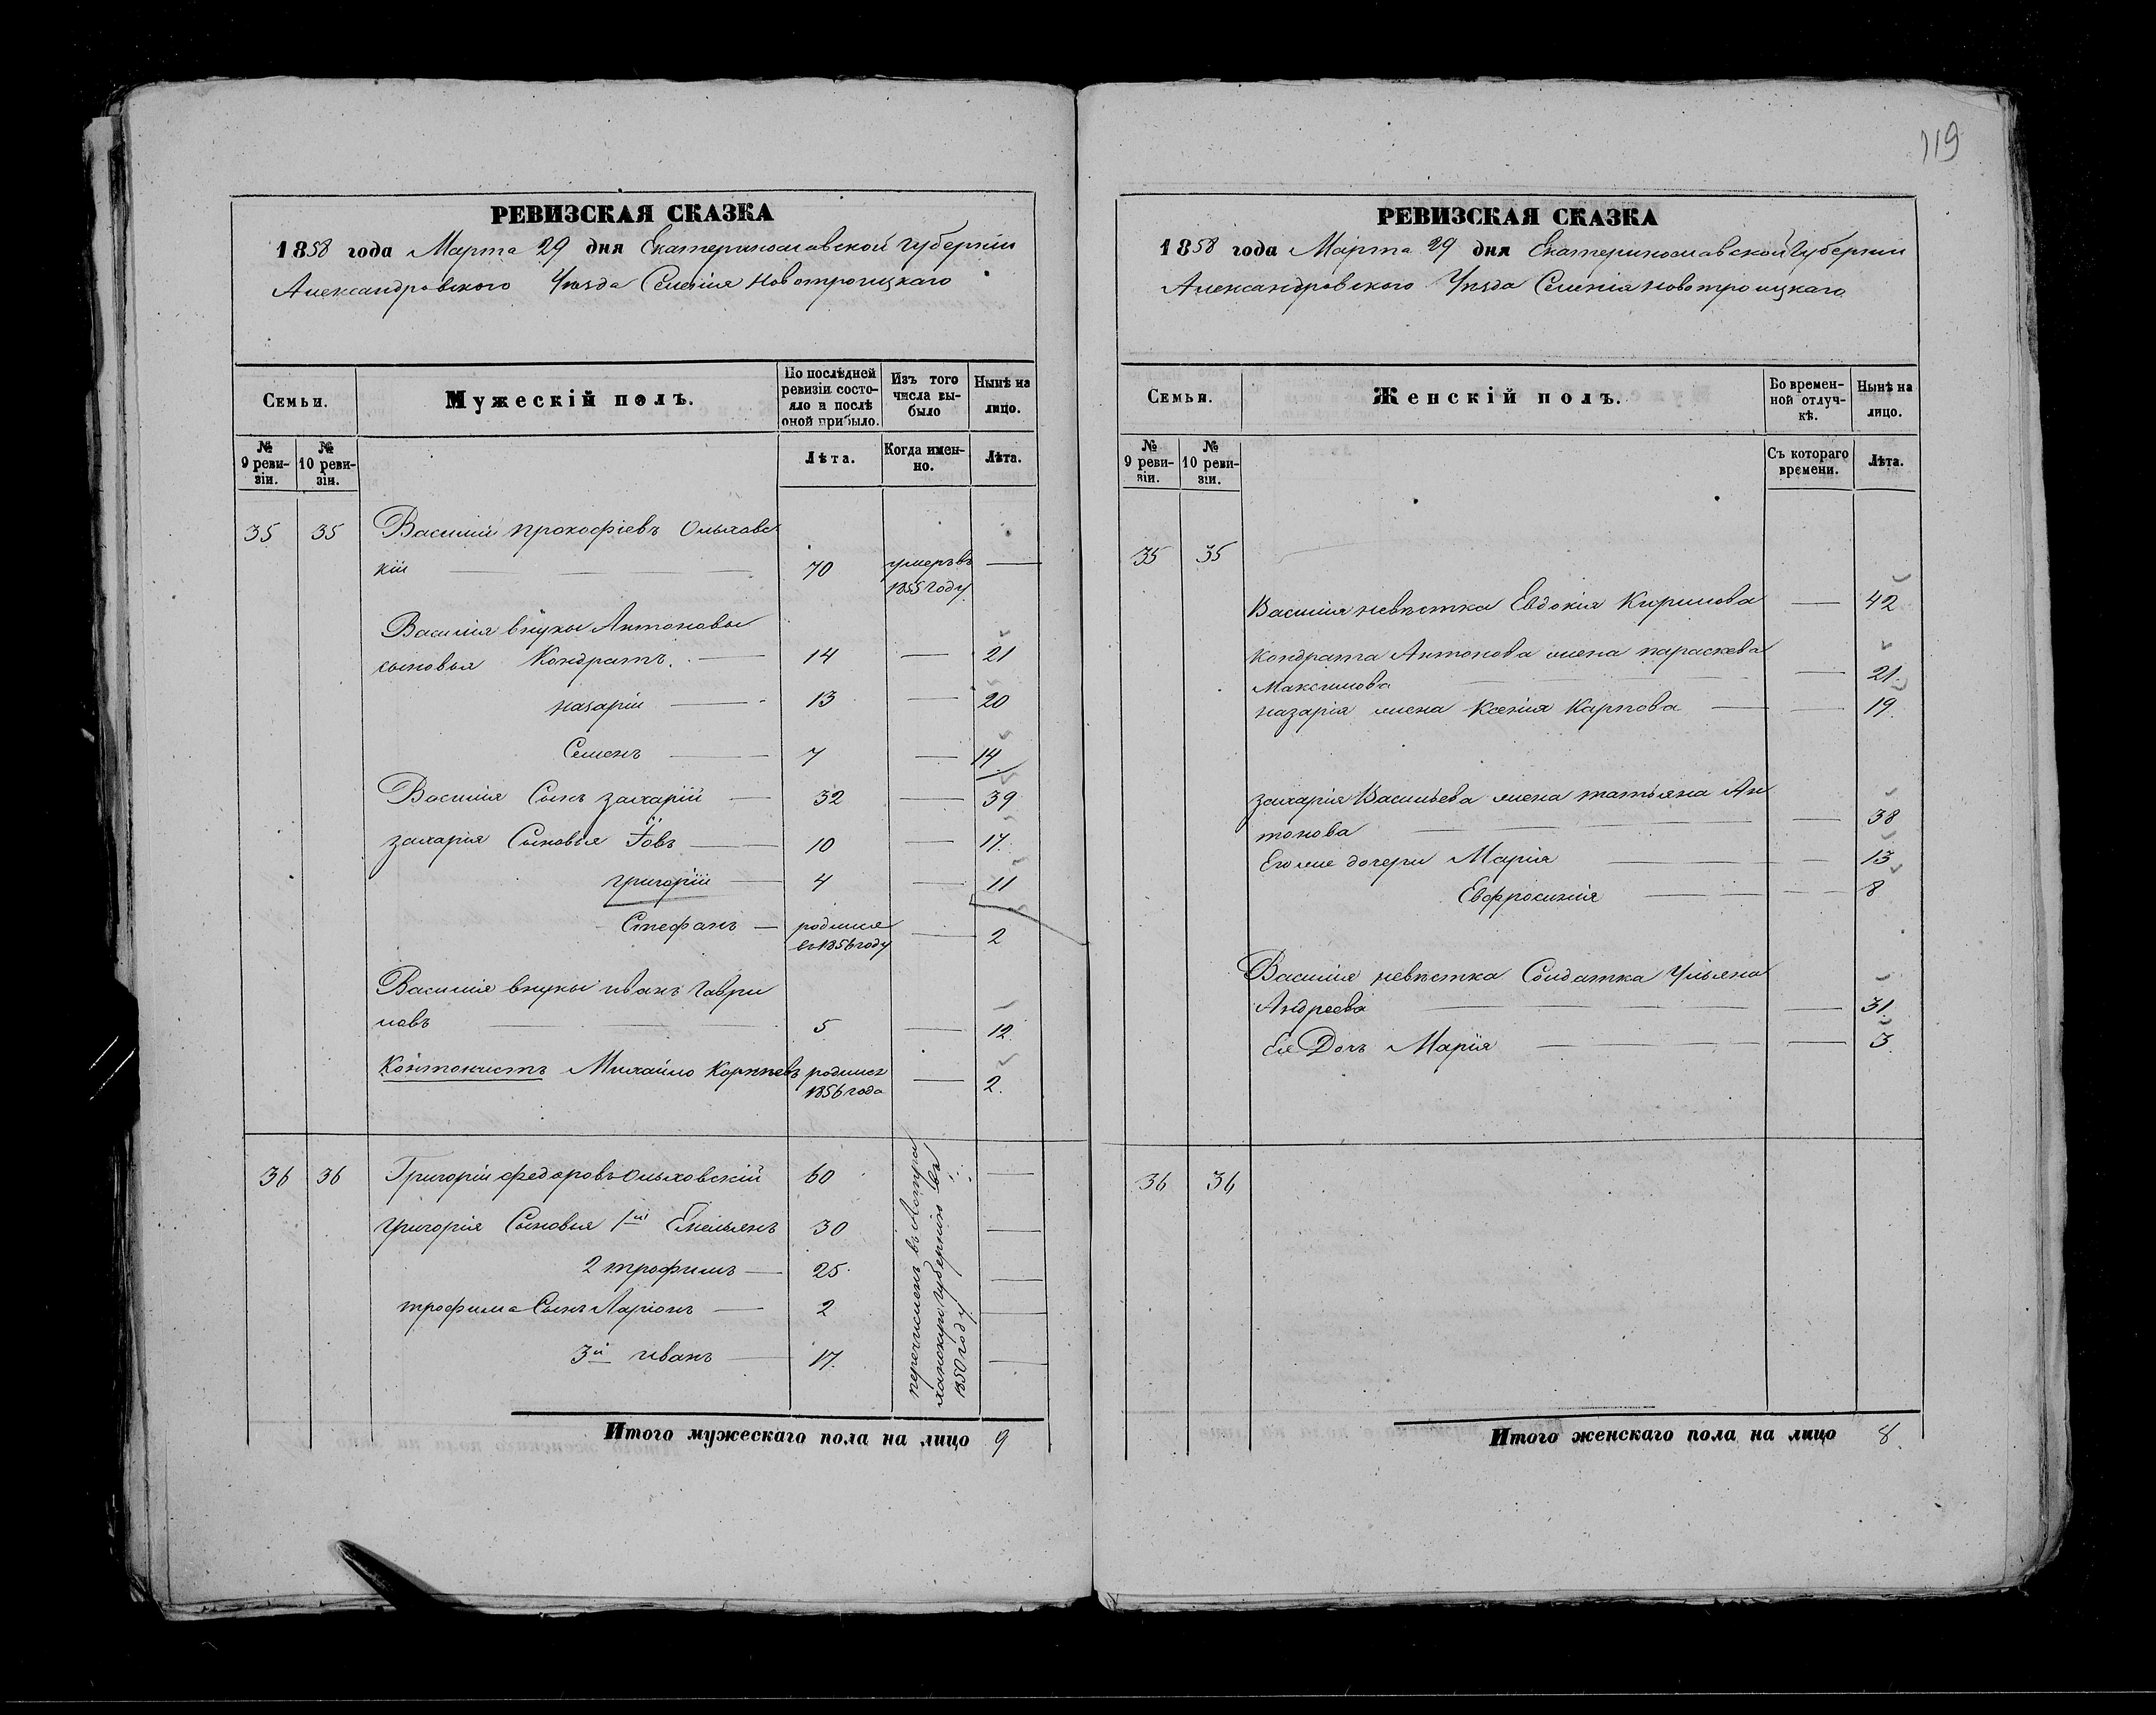 119
РЕВИЗСКАЯ СКАЗКА
1858 года Марта 29 дня Екатеринославской губерніи
Александровского Уѣзда Селенія Новотроицкаго
Семьи.
Мужескій полъ.
По послѣдней ревизіи состояло и послѣ оной прибыло.
Изъ того числа выбыло
Нынѣ на лицо.
№ 9 ревизіи.
№ 10 ревизіи.
Лѣта.
Когда именно.
Лѣта.
35 35 Василій прокофіевъ Ольховс
кій 70 умеръ въ 1855 году
Василія внуки Антоновы
сыновья Кондратъ 14 21
назарій 13 20
Семенъ 7 14
Василія Сынъ захарій 32 39
захарія Сыновья Іовъ 10 17
григорій 4 11
Стефанъ родился въ 1856 году 2
Василія внуки иванъ Гаври
ловъ 5 12
Кантонистъ Михайло родился 1856 года 2
36 36 Григорій федоровъ Ольховскій 60
григорія Сыновья 1й Емельянъ 30
2 трофимъ 25
трофима Сынъ Ларіонъ 2
3й иванъ 17
перечисленъ въ Астра
ханскую губернію въ
1850 году
Итого мужескаго пола на лицо 9
РЕВИЗСКАЯ СКАЗКА
1858 года Марта 29 дня Екатеринославской Губерніи
Александровского Уѣзда Селенія Новотроицкаго
Семьи.
Женскій полъ.
Во временной отлучкѣ.
Нынѣ на лицо.
№ 9 ревизіи.
№ 10 ревизіи.
Съ котораго времени.
Лѣта.
35 35
Василія невѣстка Евдокія Кирилова 42
Кондрата Антонова жена параскева
Максимова 21
назарія жена Ксенія Карпова 19
захарія Васильева жена татьяна Ан
тонова 38
Его же дочери Марія 13
Евфросинія 8
Василія невѣстка Солдатка Ульяна
Андреева 31
Ея Дочь Марія 3
36 36
Итого женскаго пола на лицо 8